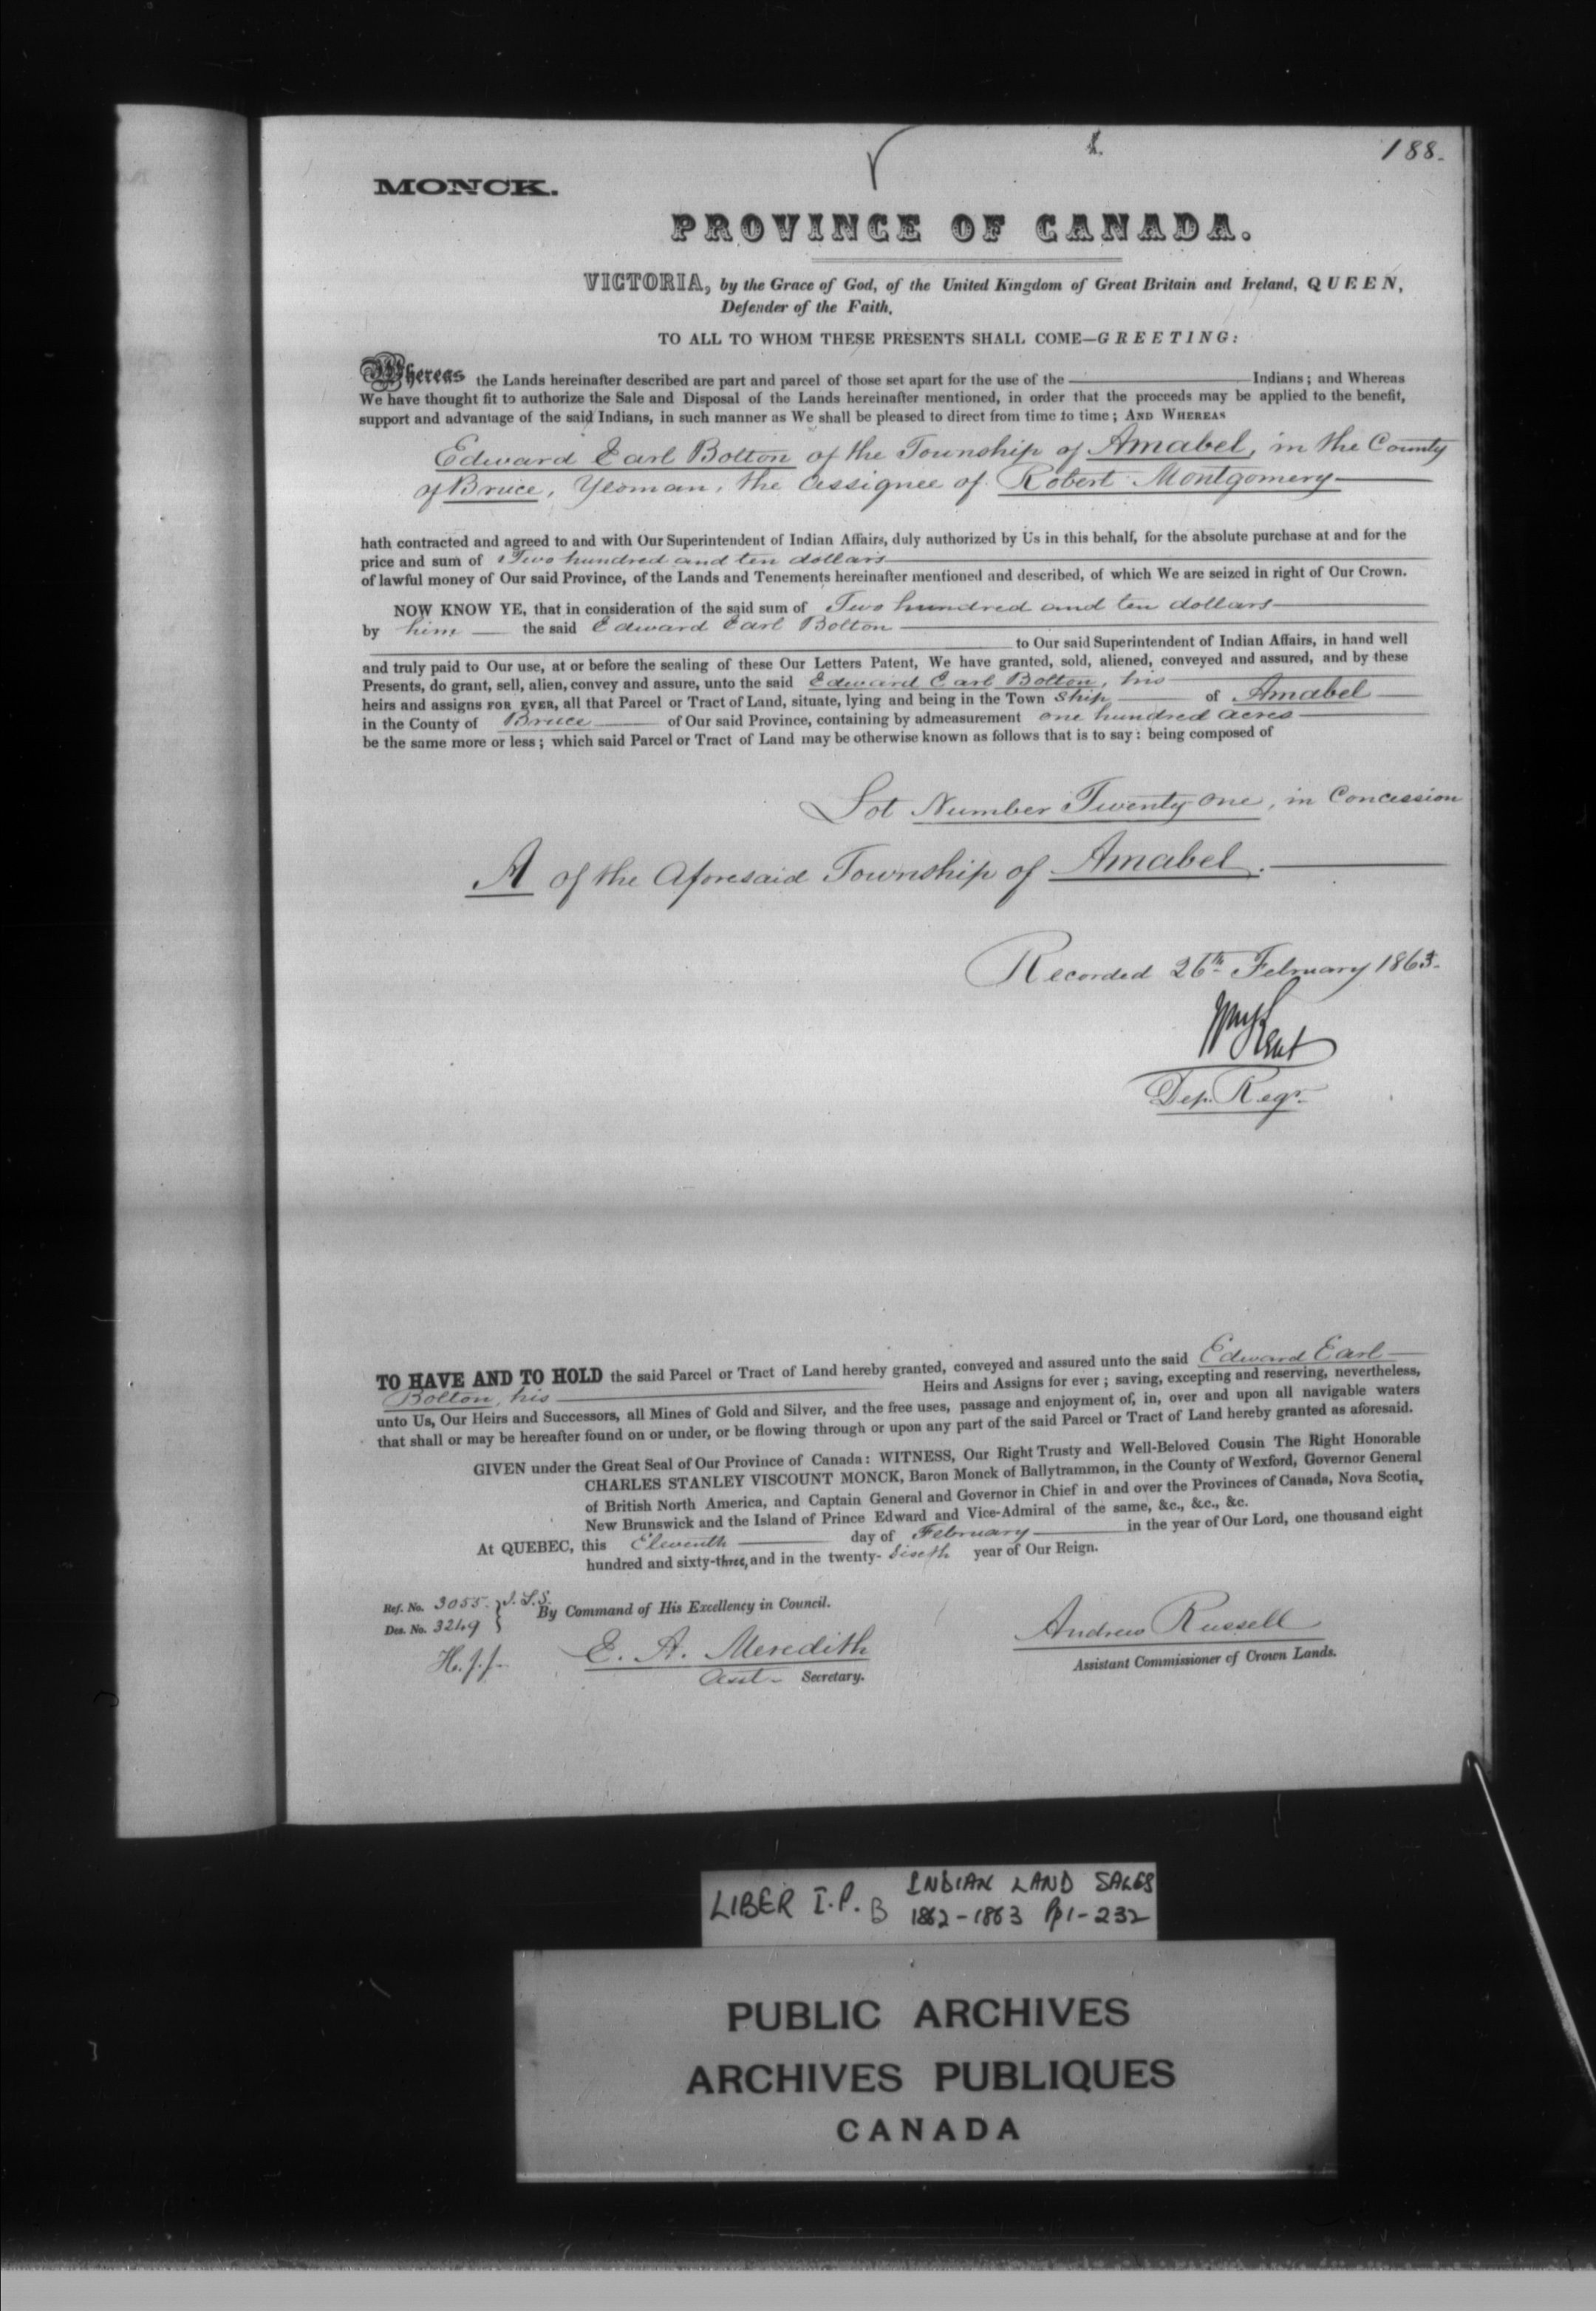 188.
MONCK.
PROVINCE OF CANADA.
VICTORIA, by the Grace of God, of the United Kingdom of Great Britain and Ireland, QUEEN,
Defender of the Faith,
TO ALL TO WHOM THESE PRESENTS SHALL COME—GREETING:
Whereas the Lands hereinafter described are part and parcel of those set apart for the use of the Indians; and Whereas
We have thought fit to authorize the Sale and Disposal of the Lands hereinafter mentioned, in order that the proceeds may be applied to the benefit,
support and advantage of the said Indians, in such manner as We shall be pleased to direct from time to time; AND WHEREAS
Edward Earl Bolton of the Township of Amabel, in the County
of Bruce, Yeoman, the Assignee of Robert Montgomery
hath contracted and agreed to and with Our Superintendent of Indian Affairs, duly authorized by Us in this behalf, for the absolute purchase at and for the
price and sum of Two hundred and ten dollars
of lawful money of Our said Province, of the Lands and Tenements hereinafter mentioned and described, of which We are seized in right of Our Crown.
NOW KNOW YE, that in consideration of the said sum of Two hundred and ten dollars
by him the said Edward Earl Bolton
to Our said Superintendent of Indian Affairs, in hand well
and truly paid to Our use, at or before the sealing of these Our Letters Patent, We have granted, sold, aliened, conveyed and assured, and by these
Presents, do grant, sell, alien, convey and assure, unto the said Edward Earl Bolton, his
heirs and assigns FOR EVER, all that Parcel or Tract of Land, situate, lying and being in the Town Ship of Amabel
in the County of Bruce of Our said Province, containing by admeasurement one hundred acres
be the same more or less; which said Parcel or Tract of Land may be otherwise known as follows that is to say: being composed of
Lot Number Twenty One, in Concession
A of the Aforesaid Township of Amabel.
Recorded 26th February 1863.
Wm Kent
Dep. Regr.
TO HAVE AND TO HOLD the said Parcel or Tract of Land hereby granted, conveyed and assured unto the said Edward Earl
Bolton, his Heirs and Assigns for ever; saving, excepting and reserving, nevertheless,
unto Us, Our Heirs and Successors, all Mines of Gold and Silver, and the free uses, passage and enjoyment of, in, over and upon all navigable waters
that shall or may be hereafter found on or under, or be flowing through or upon any part of the said Parcel or Tract of Land hereby granted as aforesaid.
GIVEN under the Great Seal of Our Province of Canada: WITNESS, Our Right Trusty and Well-Beloved Cousin The Right Honorable
CHARLES STANLEY VISCOUNT MONCK, Baron Monck of Ballytrammon, in the County of Wexford, Governor General
of British North America, and Captain General and Governor in Chief in and over the Provinces of Canada, Nova Scotia,
New Brunswick and the Island of Prince Edward and Vice-Admiral of the same, &c., &c., &c.
At QUEBEC, this Eleventh day of February in the year of Our Lord, one thousand eight
hundred and sixty-three, and in the twenty-sixth year of Our Reign.
Ref. No. 3055.
Des. No. 3249
By Command of His Excellency in Council.
H.J.J.
E. A. Meredith
Asst. Secretary.
Andrew Russell
Assistant Commissioner of Crown Lands.
LIBER I.P. B INDIAN LAND SALES
1862-1863 Pp 1-232
PUBLIC ARCHIVES
ARCHIVES PUBLIQUES
CANADA